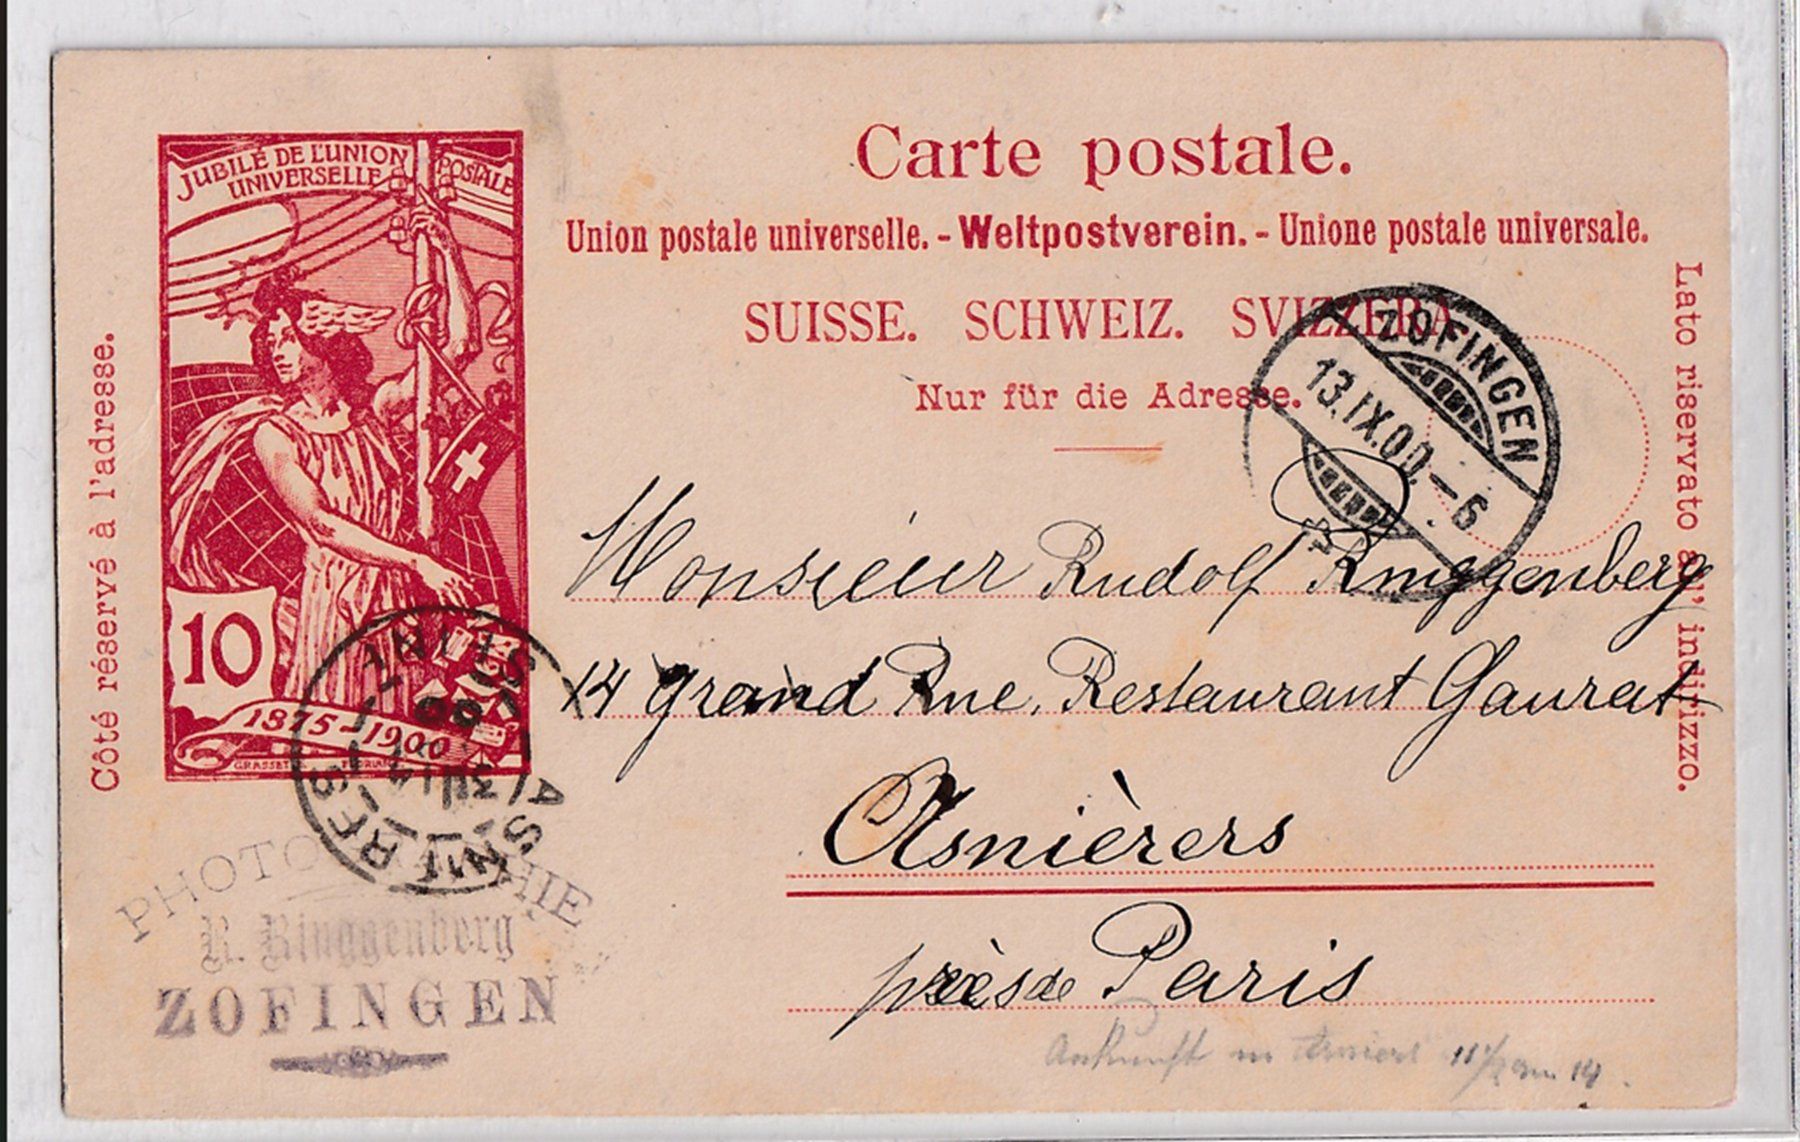 Carte postale.
Union postale universelle. - Weltpostverein. - Unione postale universale.
SUISSE. SCHWEIZ. SVIZZERA
Nur für die Adresse.
Côté réservé à l'adresse.
Lato riservato all' indirizzo.
JUBILÉ DE L'UNION POSTALE
UNIVERSELLE
10
1875-1900
GRASSET
ZOFINGEN
13.IX.00.-6
Monsieur Rudolf Ringgenberg
14 grand Rue, Restaurant Gaurat
Asnièrers
près de Paris
ASNIERES
SEINE
00
PHOTOGRAPHIE
R. Ringgenberg
ZOFINGEN
Ankunft in